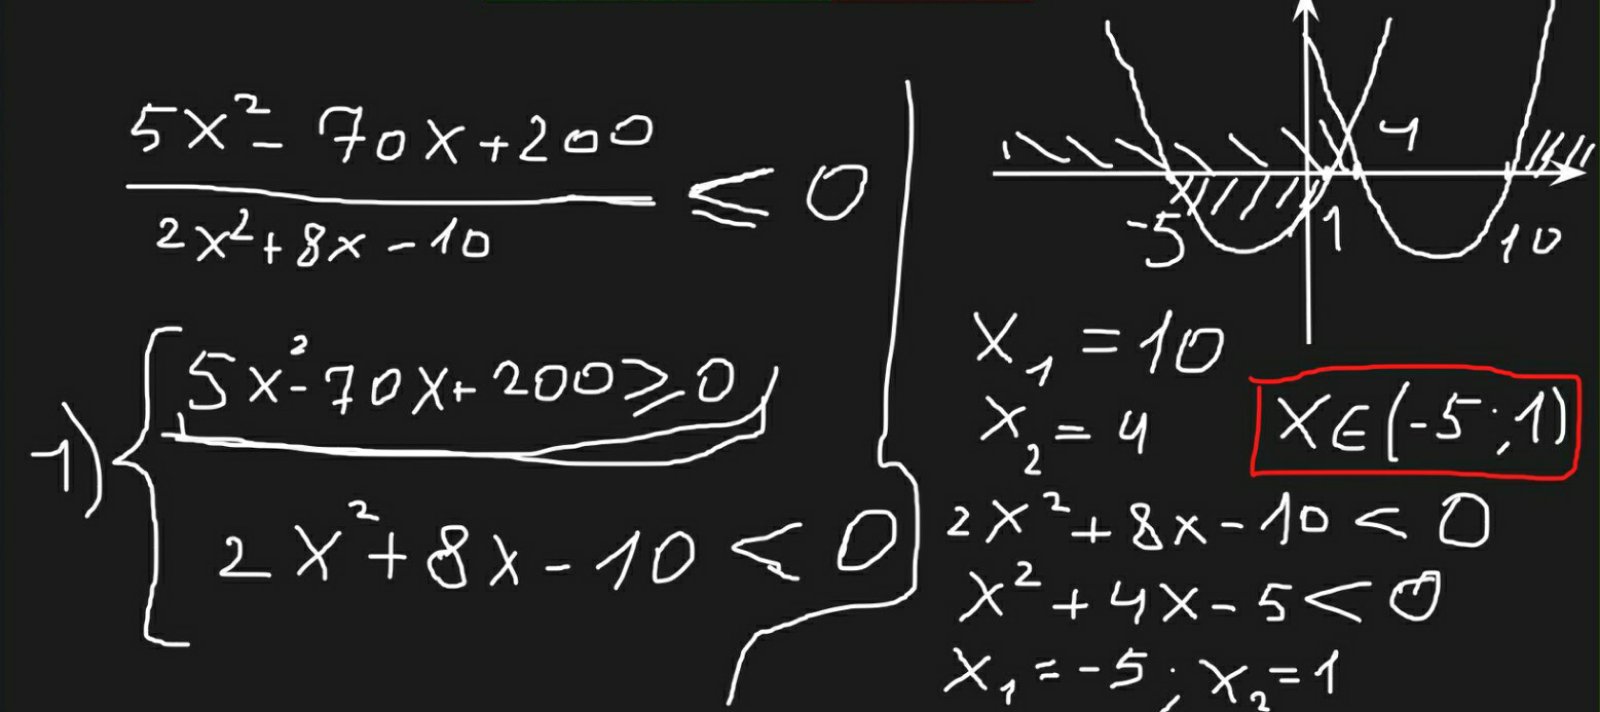 5x² - 70x + 200
2x² + 8x - 10
≤ 0
1)
5x² - 70x + 200 ≥ 0
2x² + 8x - 10 < 0
4
-5 1 10
x₁ = 10
x₂ = 4
x ∈ (-5 ; 1)
2x² + 8x - 10 < 0
x² + 4x - 5 < 0
x₁ = -5 ; x₂ = 1